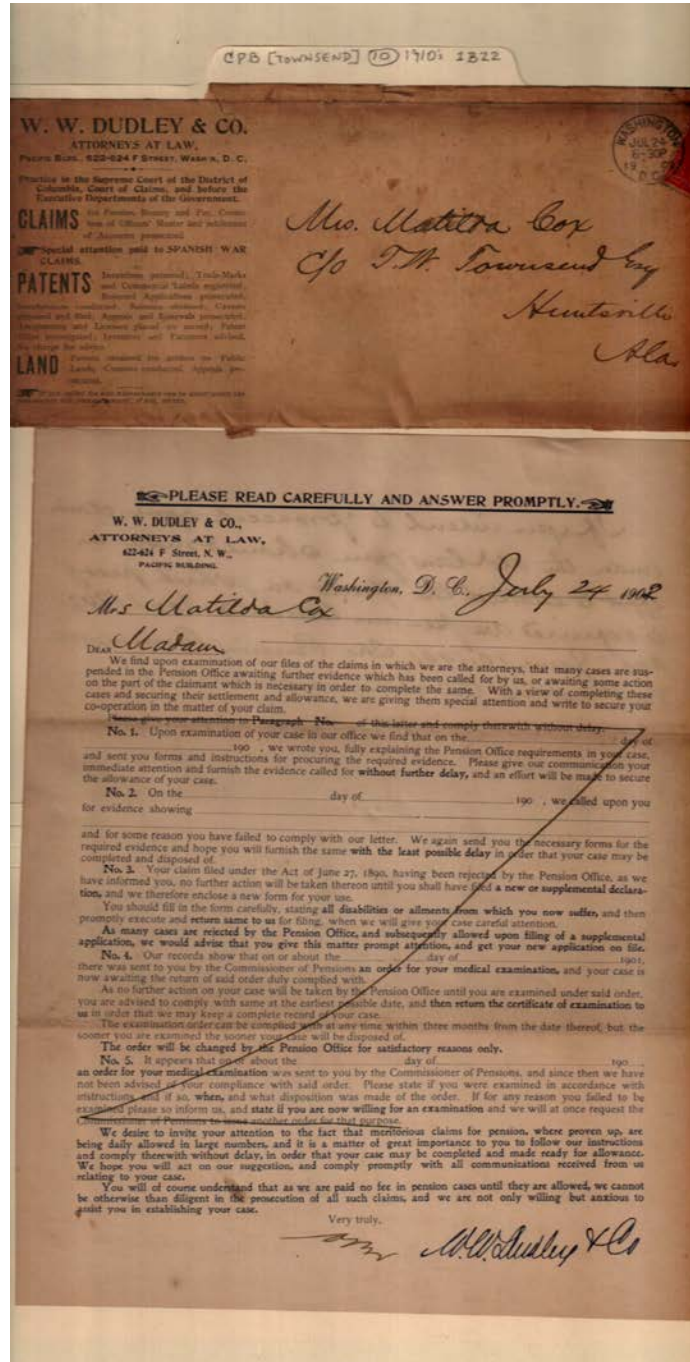 CPB [TOWNSEND] (10) 1910s 1822
W. W. DUDLEY & CO.
ATTORNEYS AT LAW,
PACIFIC BLDG. 622-624 F STREET, WASH'N, D. C.
Practice in the Supreme Court of the District of
Columbia, Court of Claims, and before the
Executive Departments of the Government.
CLAIMS for Pension, Bounty and Pay, Correction
of Officers' Muster and settlement
of Accounts prosecuted.
Special attention paid to SPANISH WAR
CLAIMS.
PATENTS Inventions patented; Trade-Marks
and Commercial Labels registered.
Rejected Applications prosecuted.
LAND Patents obtained for settlers on Public
Lands, Contests conducted. Appeals prosecuted.
WASHINGTON
JUL 24
6-30P
D.C.
Mrs. Matilda Cox
C/o T.W. Townsend Esq
Huntsville
Ala
PLEASE READ CAREFULLY AND ANSWER PROMPTLY.
W. W. DUDLEY & CO.,
ATTORNEYS AT LAW,
622-624 F Street, N. W.,
PACIFIC BUILDING.
Washington, D. C., July 24 1902
Mrs Matilda Cox
DEAR Madam
We find upon examination of our files of the claims in which we are the attorneys, that many cases are sus-
pended in the Pension Office awaiting further evidence which has been called for by us, or awaiting some action
on the part of the claimant which is necessary in order to complete the same. With a view of completing these
cases and securing their settlement and allowance, we are giving them special attention and write to secure your
co-operation in the matter of your claim.
Please give your attention to Paragraph No. of this letter and comply therewith without delay.
No. 1. Upon examination of your case in our office we find that on the day of
190 , we wrote you, fully explaining the Pension Office requirements in your case,
and sent you forms and instructions for procuring the required evidence. Please give our communication your
immediate attention and furnish the evidence called for without further delay, and an effort will be made to secure
the allowance of your case.
No. 2. On the day of 190 , we called upon you
for evidence showing
and for some reason you have failed to comply with our letter. We again send you the necessary forms for the
required evidence and hope you will furnish the same with the least possible delay in order that your case may be
completed and disposed of.
No. 3. Your claim filed under the Act of June 27, 1890, having been rejected by the Pension Office, as we
have informed you, no further action will be taken thereon until you shall have filed a new or supplemental declara-
tion, and we therefore enclose a new form for your use.
You should fill in the form carefully, stating all disabilities or ailments from which you now suffer, and then
promptly execute and return same to us for filing, when we will give your case careful attention.
As many cases are rejected by the Pension Office, and subsequently allowed upon filing of a supplemental
application, we would advise that you give this matter prompt attention, and get your new application on file.
No. 4. Our records show that on or about the day of 1901,
there was sent to you by the Commissioner of Pensions an order for your medical examination, and your case is
now awaiting the return of said order duly complied with.
As no further action on your case will be taken by the Pension Office until you are examined under said order,
you are advised to comply with same at the earliest possible date, and then return the certificate of examination to
us in order that we may keep a complete record of your case.
The examination order can be complied with at any time within three months from the date thereof, but the
sooner you are examined the sooner your case will be disposed of.
The order will be changed by the Pension Office for satisfactory reasons only.
No. 5. It appears that on or about the day of 190
an order for your medical examination was sent to you by the Commissioner of Pensions, and since then we have
not been advised of your compliance with said order. Please state if you were examined in accordance with
instructions, and if so, when, and what disposition was made of the order. If for any reason you failed to be
examined please so inform us, and state if you are now willing for an examination and we will at once request the
Commissioner of Pensions to issue another order for that purpose.
We desire to invite your attention to the fact that meritorious claims for pension, where proven up, are
being daily allowed in large numbers, and it is a matter of great importance to you to follow our instructions
and comply therewith without delay, in order that your case may be completed and made ready for allowance.
We hope you will act on our suggestion, and comply promptly with all communications received from us
relating to your case.
You will of course understand that as we are paid no fee in pension cases until they are allowed, we cannot
be otherwise than diligent in the prosecution of all such claims, and we are not only willing but anxious to
assist you in establishing your case.
Very truly,
W.W. Dudley & Co